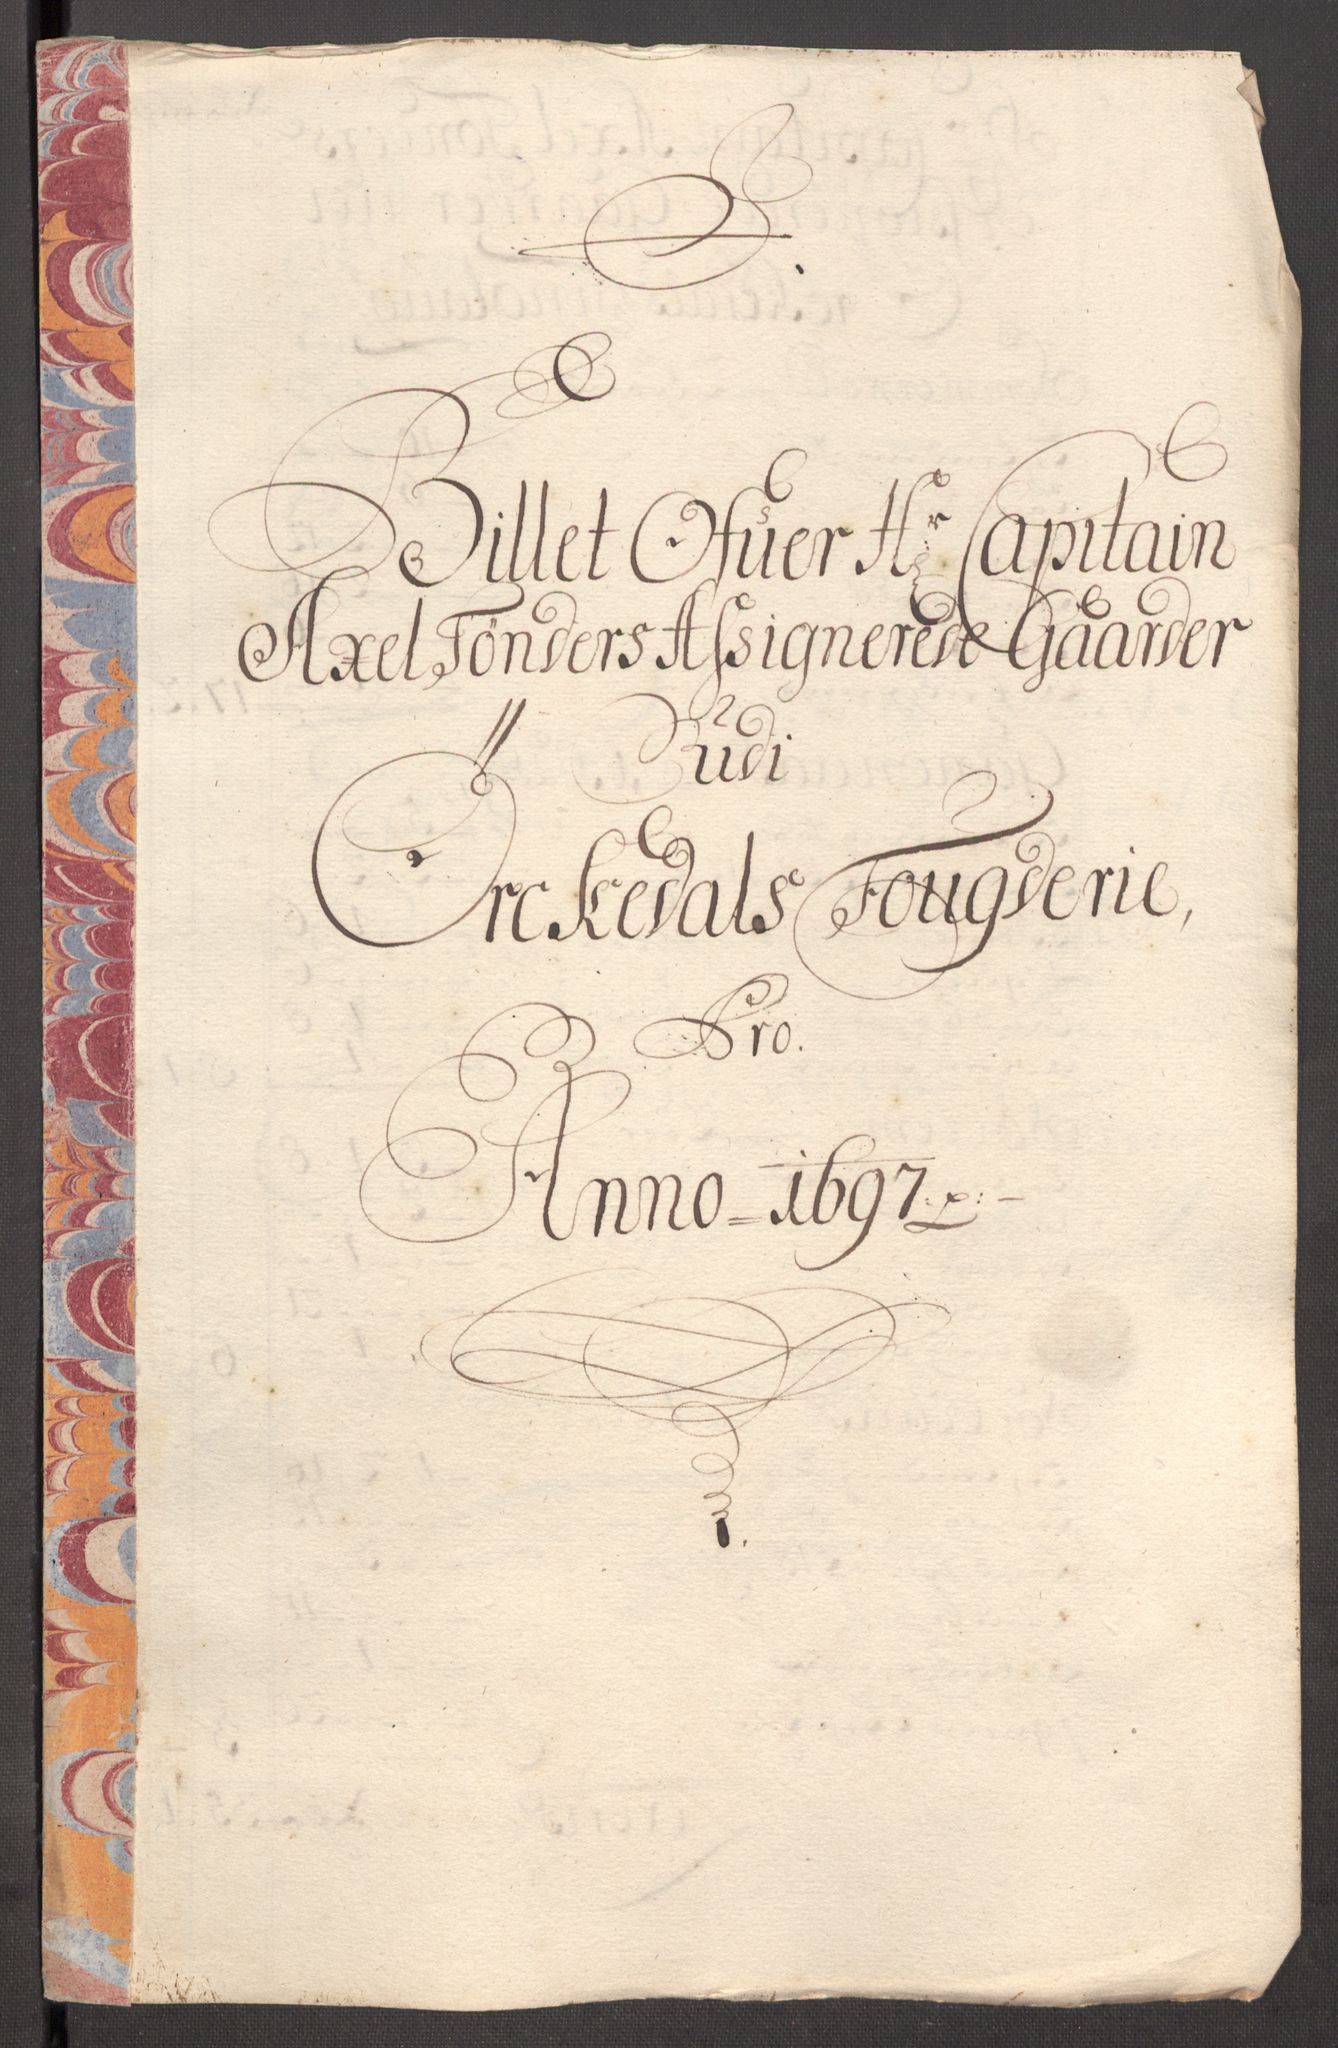 Billet Ofuer Hr Capitain
Axel Tønders Assignerede Gaarder
Udi
Orckedals Fougderie,
Pro.
Anno = 1697